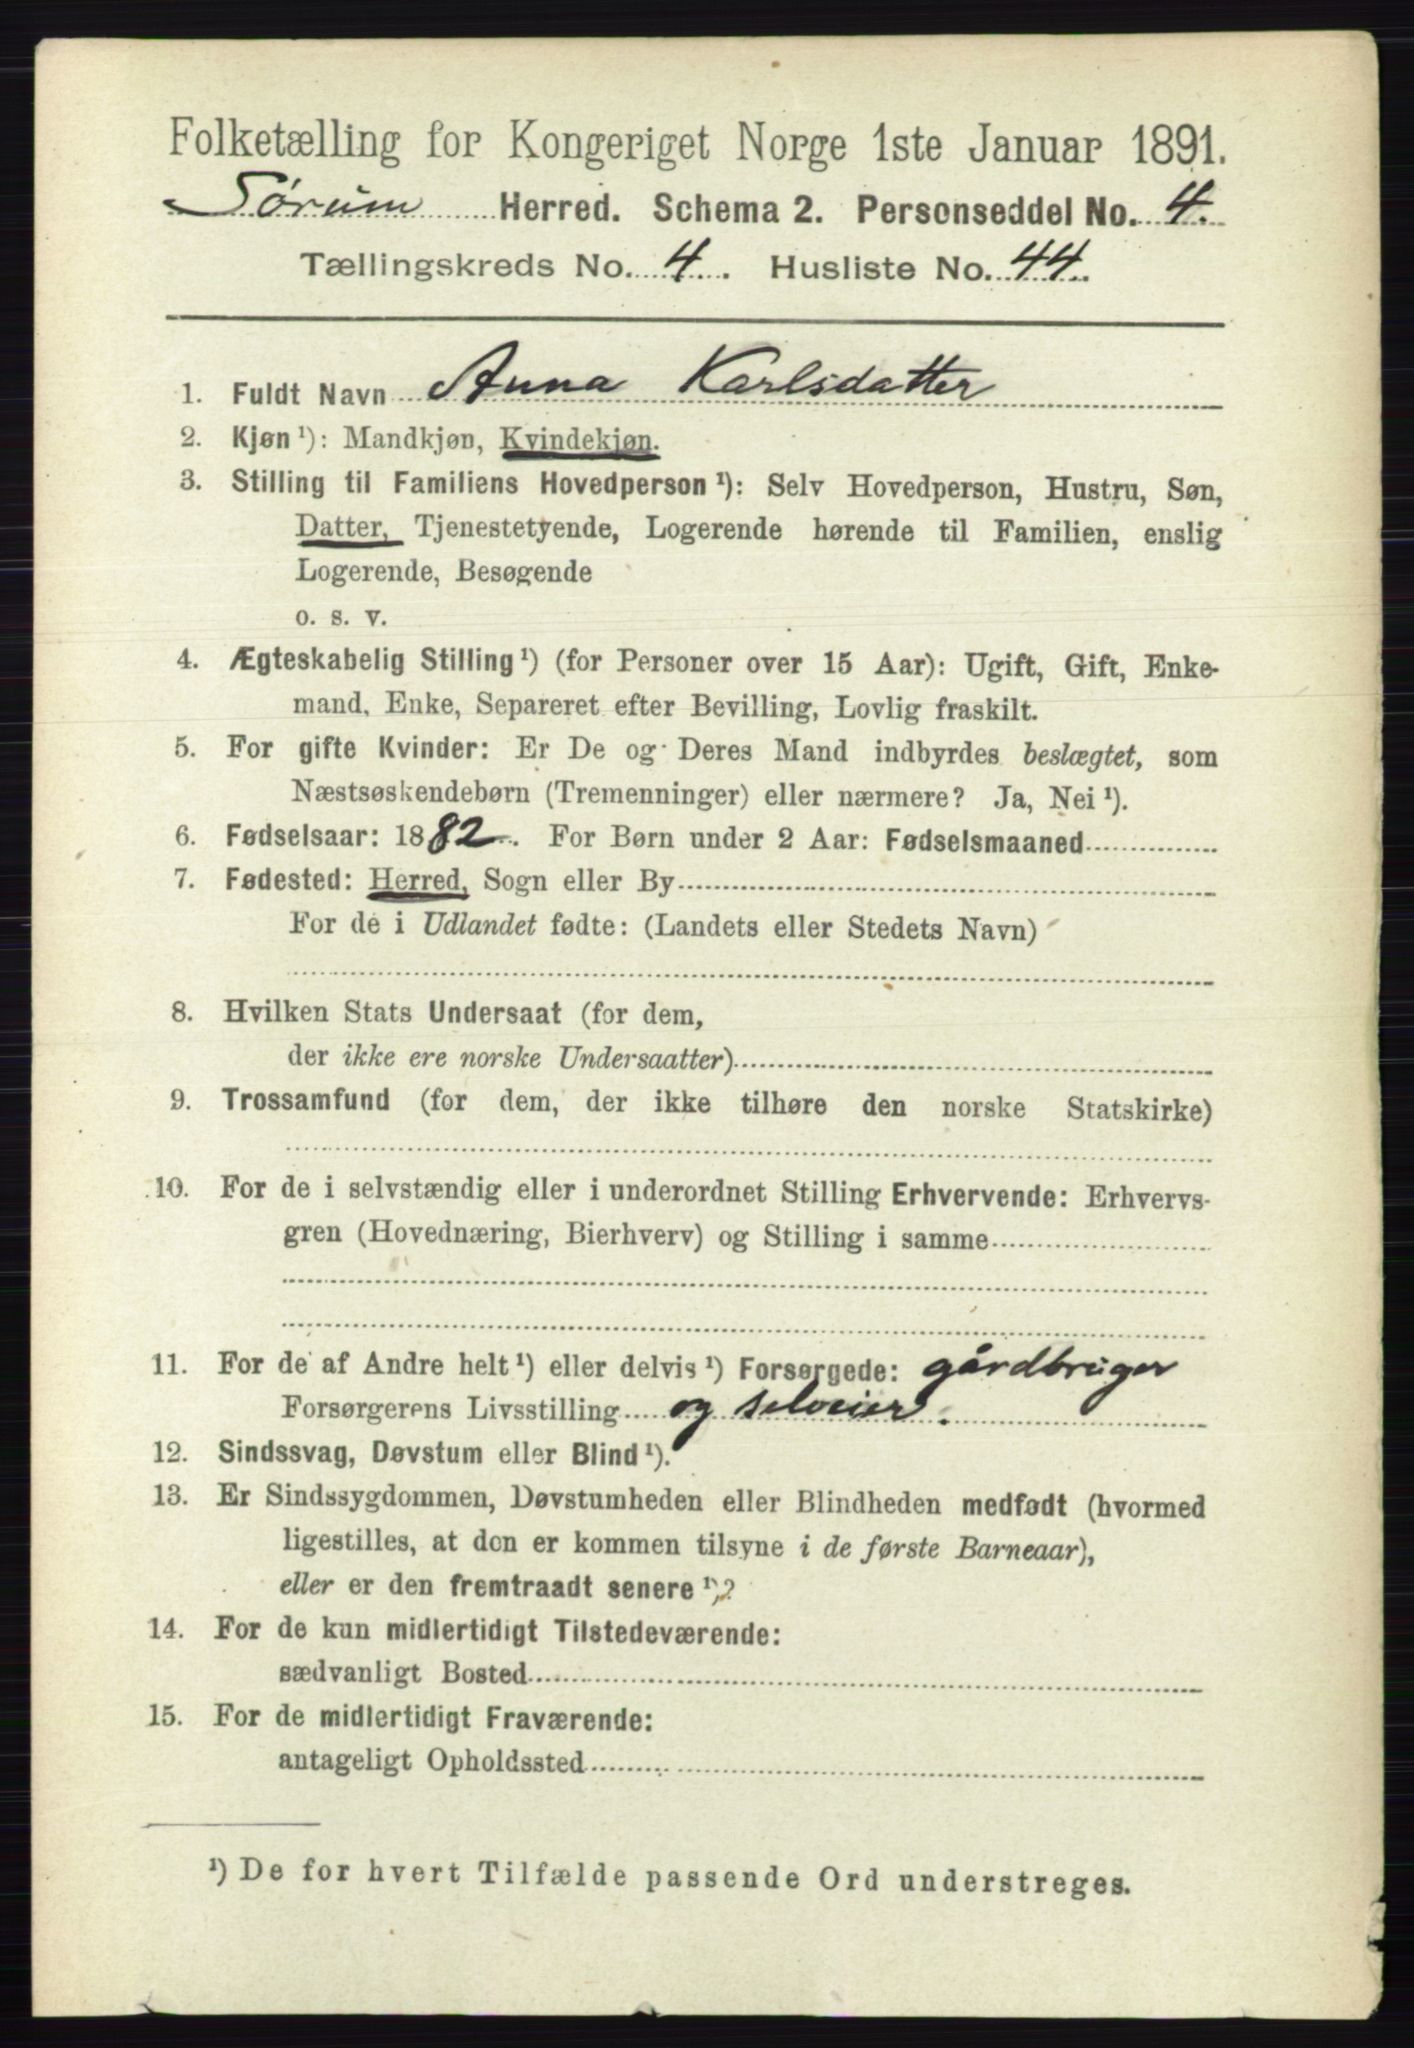 Folketælling for Kongeriget Norge 1ste Januar 1891.
Sørum Herred. Schema 2. Personseddel No. 4.
Tællingskreds No. 4. Husliste No. 44.
1. Fuldt Navn Anna Karlsdatter
2. Kjøn ¹): Mandkjøn, Kvindekjøn.
3. Stilling til Familiens Hovedperson ¹): Selv Hovedperson, Hustru, Søn,
Datter, Tjenestetyende, Logerende hørende til Familien, enslig
Logerende, Besøgende
o. s. v.
4. Ægteskabelig Stilling ¹) (for Personer over 15 Aar): Ugift, Gift, Enke-
mand, Enke, Separeret efter Bevilling, Lovlig fraskilt.
5. For gifte Kvinder: Er De og Deres Mand indbyrdes beslægtet, som
Næstsøskendebørn (Tremenninger) eller nærmere? Ja, Nei ¹).
6. Fødselsaar: 1882. For Børn under 2 Aar: Fødselsmaaned
7. Fødested: Herred, Sogn eller By
For de i Udlandet fødte: (Landets eller Stedets Navn)
8. Hvilken Stats Undersaat (for dem,
der ikke ere norske Undersaatter)
9. Trossamfund (for dem, der ikke tilhøre den norske Statskirke)
10. For de i selvstændig eller i underordnet Stilling Erhvervende: Erhvervs-
gren (Hovednæring, Bierhverv) og Stilling i samme
11. For de af Andre helt ¹) eller delvis ¹) Forsørgede: gårdbruger
Forsørgerens Livsstilling og selveier.
12. Sindssvag, Døvstum eller Blind ¹).
13. Er Sindssygdommen, Døvstumheden eller Blindheden medfødt (hvormed
ligestilles, at den er kommen tilsyne i de første Barneaar),
eller er den fremtraadt senere ¹)?
14. For de kun midlertidigt Tilstedeværende:
sædvanligt Bosted
15. For de midlertidigt Fraværende:
antageligt Opholdssted
¹) De for hvert Tilfælde passende Ord understreges.